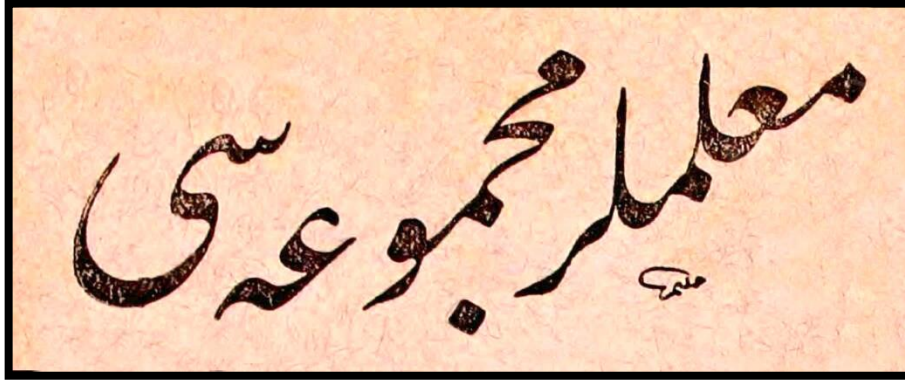 معلملر مجموعه سی